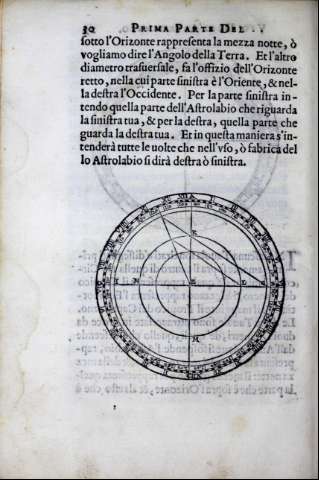 30 PRIMA PARTE DEL
sotto l'Orizonte rappresenta la mezza notte, ò
vogliamo dire l'Angolo della Terra. Et l'altro
diametro trasuersale, fa l'offizio dell'Orizonte
retto, nella cui parte sinistra è l'Oriente, & nel-
la destra l'Occidente. Per la parte sinistra in-
tendo quella parte dell'Astrolabio che riguarda
la sinistra tua, & per la destra, quella parte che
guarda la destra tua. Et in questa maniera s'in-
tenderà tutte le uolte che nell'vso, ò fabrica del
lo Astrolabio si dirà destra ò sinistra.